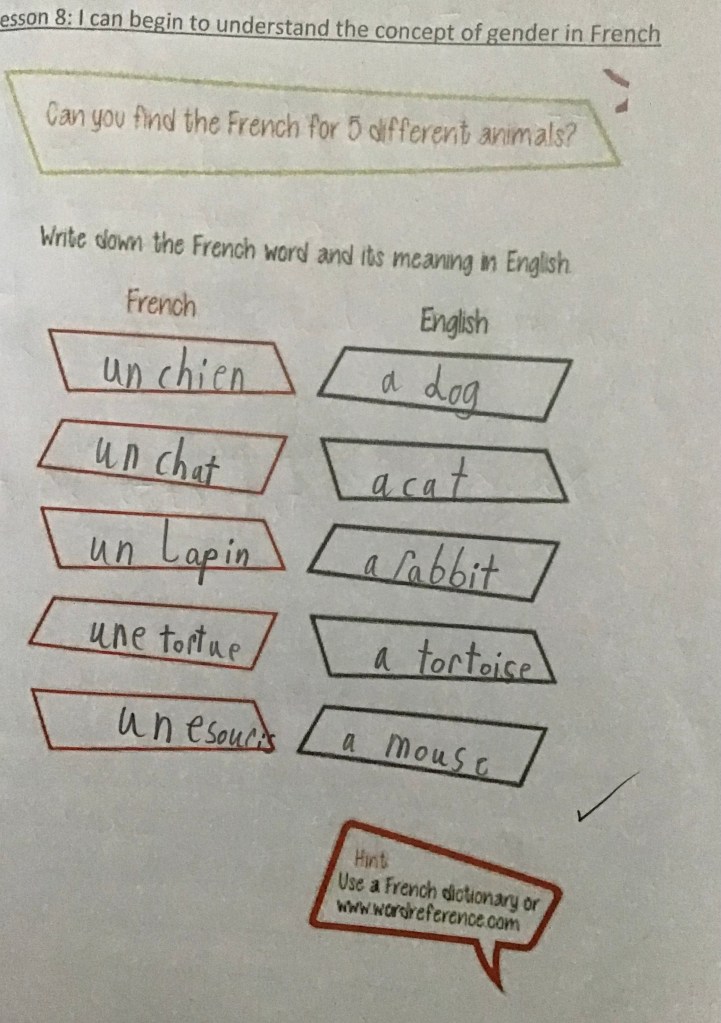 esson 8: I can begin to understand the concept of gender in French
Can you find the French for 5 different animals?
Write down the French word and its meaning in English
French English
un chien a dog
un chat a cat
un Lapin a rabbit
une tortue a tortoise
une souris a mouse
Hint
Use a French dictionary or
www.wordreference.com